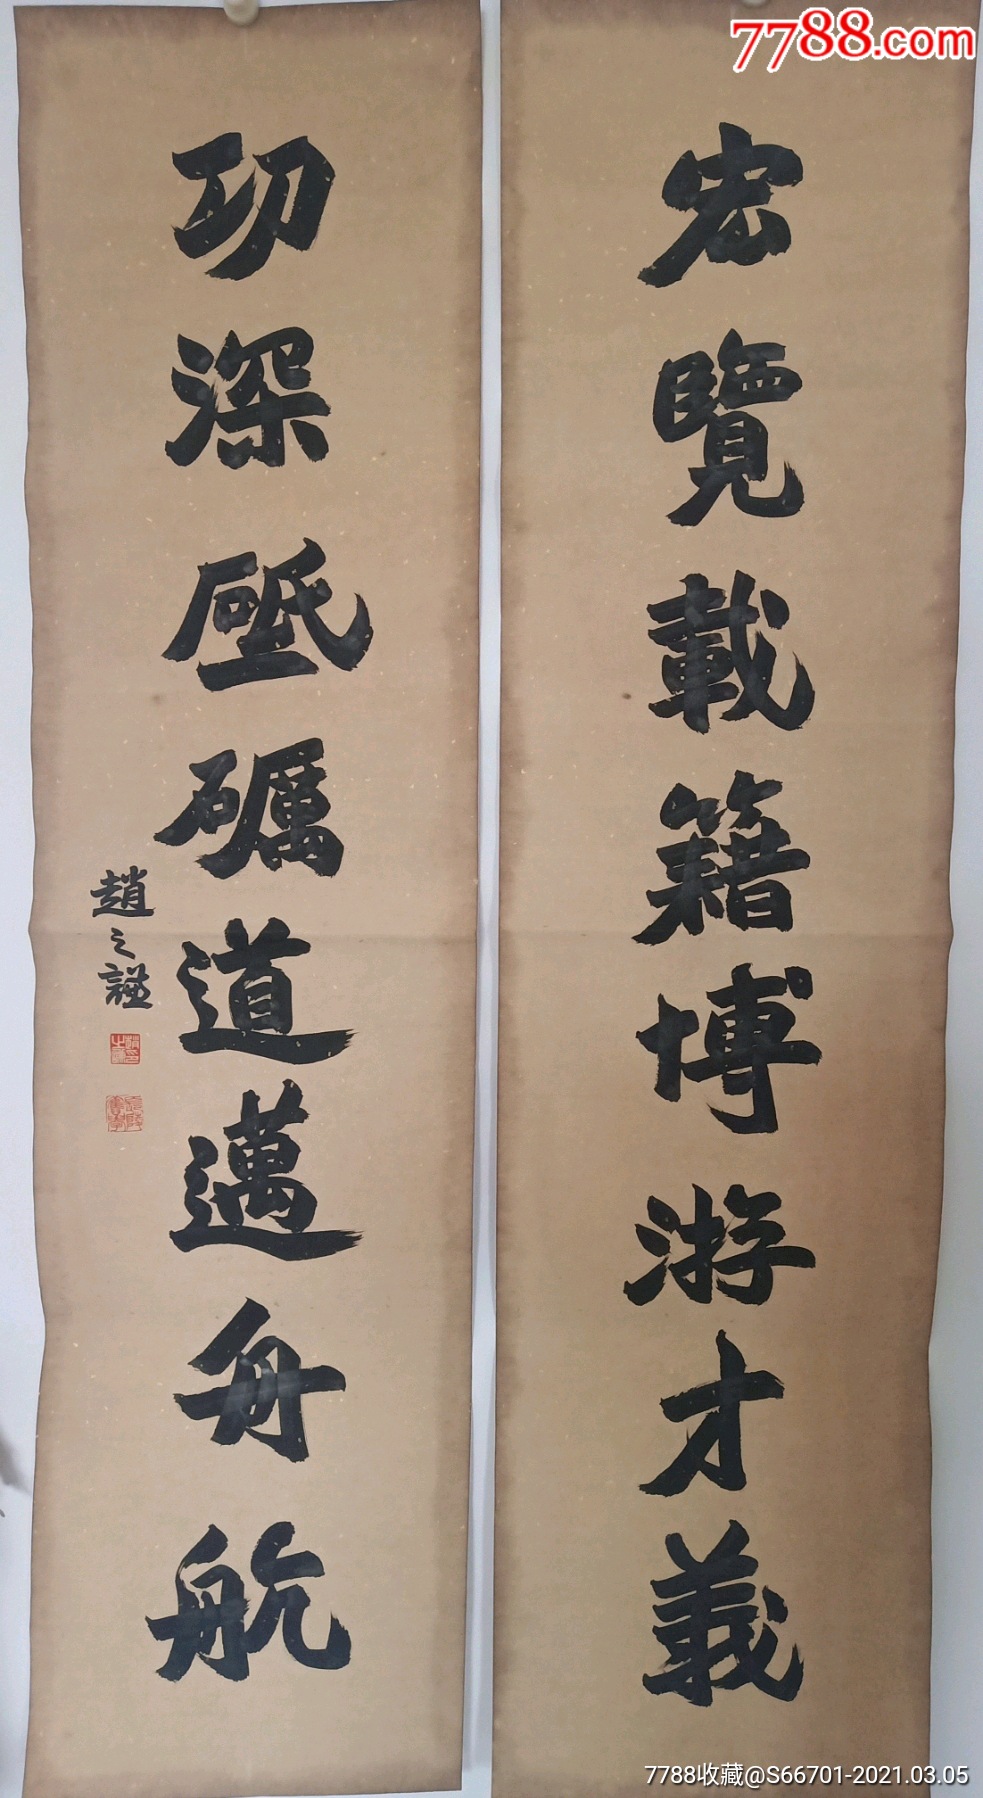 7788.com
宏覽載籍博游才義
功深砥礪道邁舟航
趙之謙
7788收藏@S66701-2021.03.05